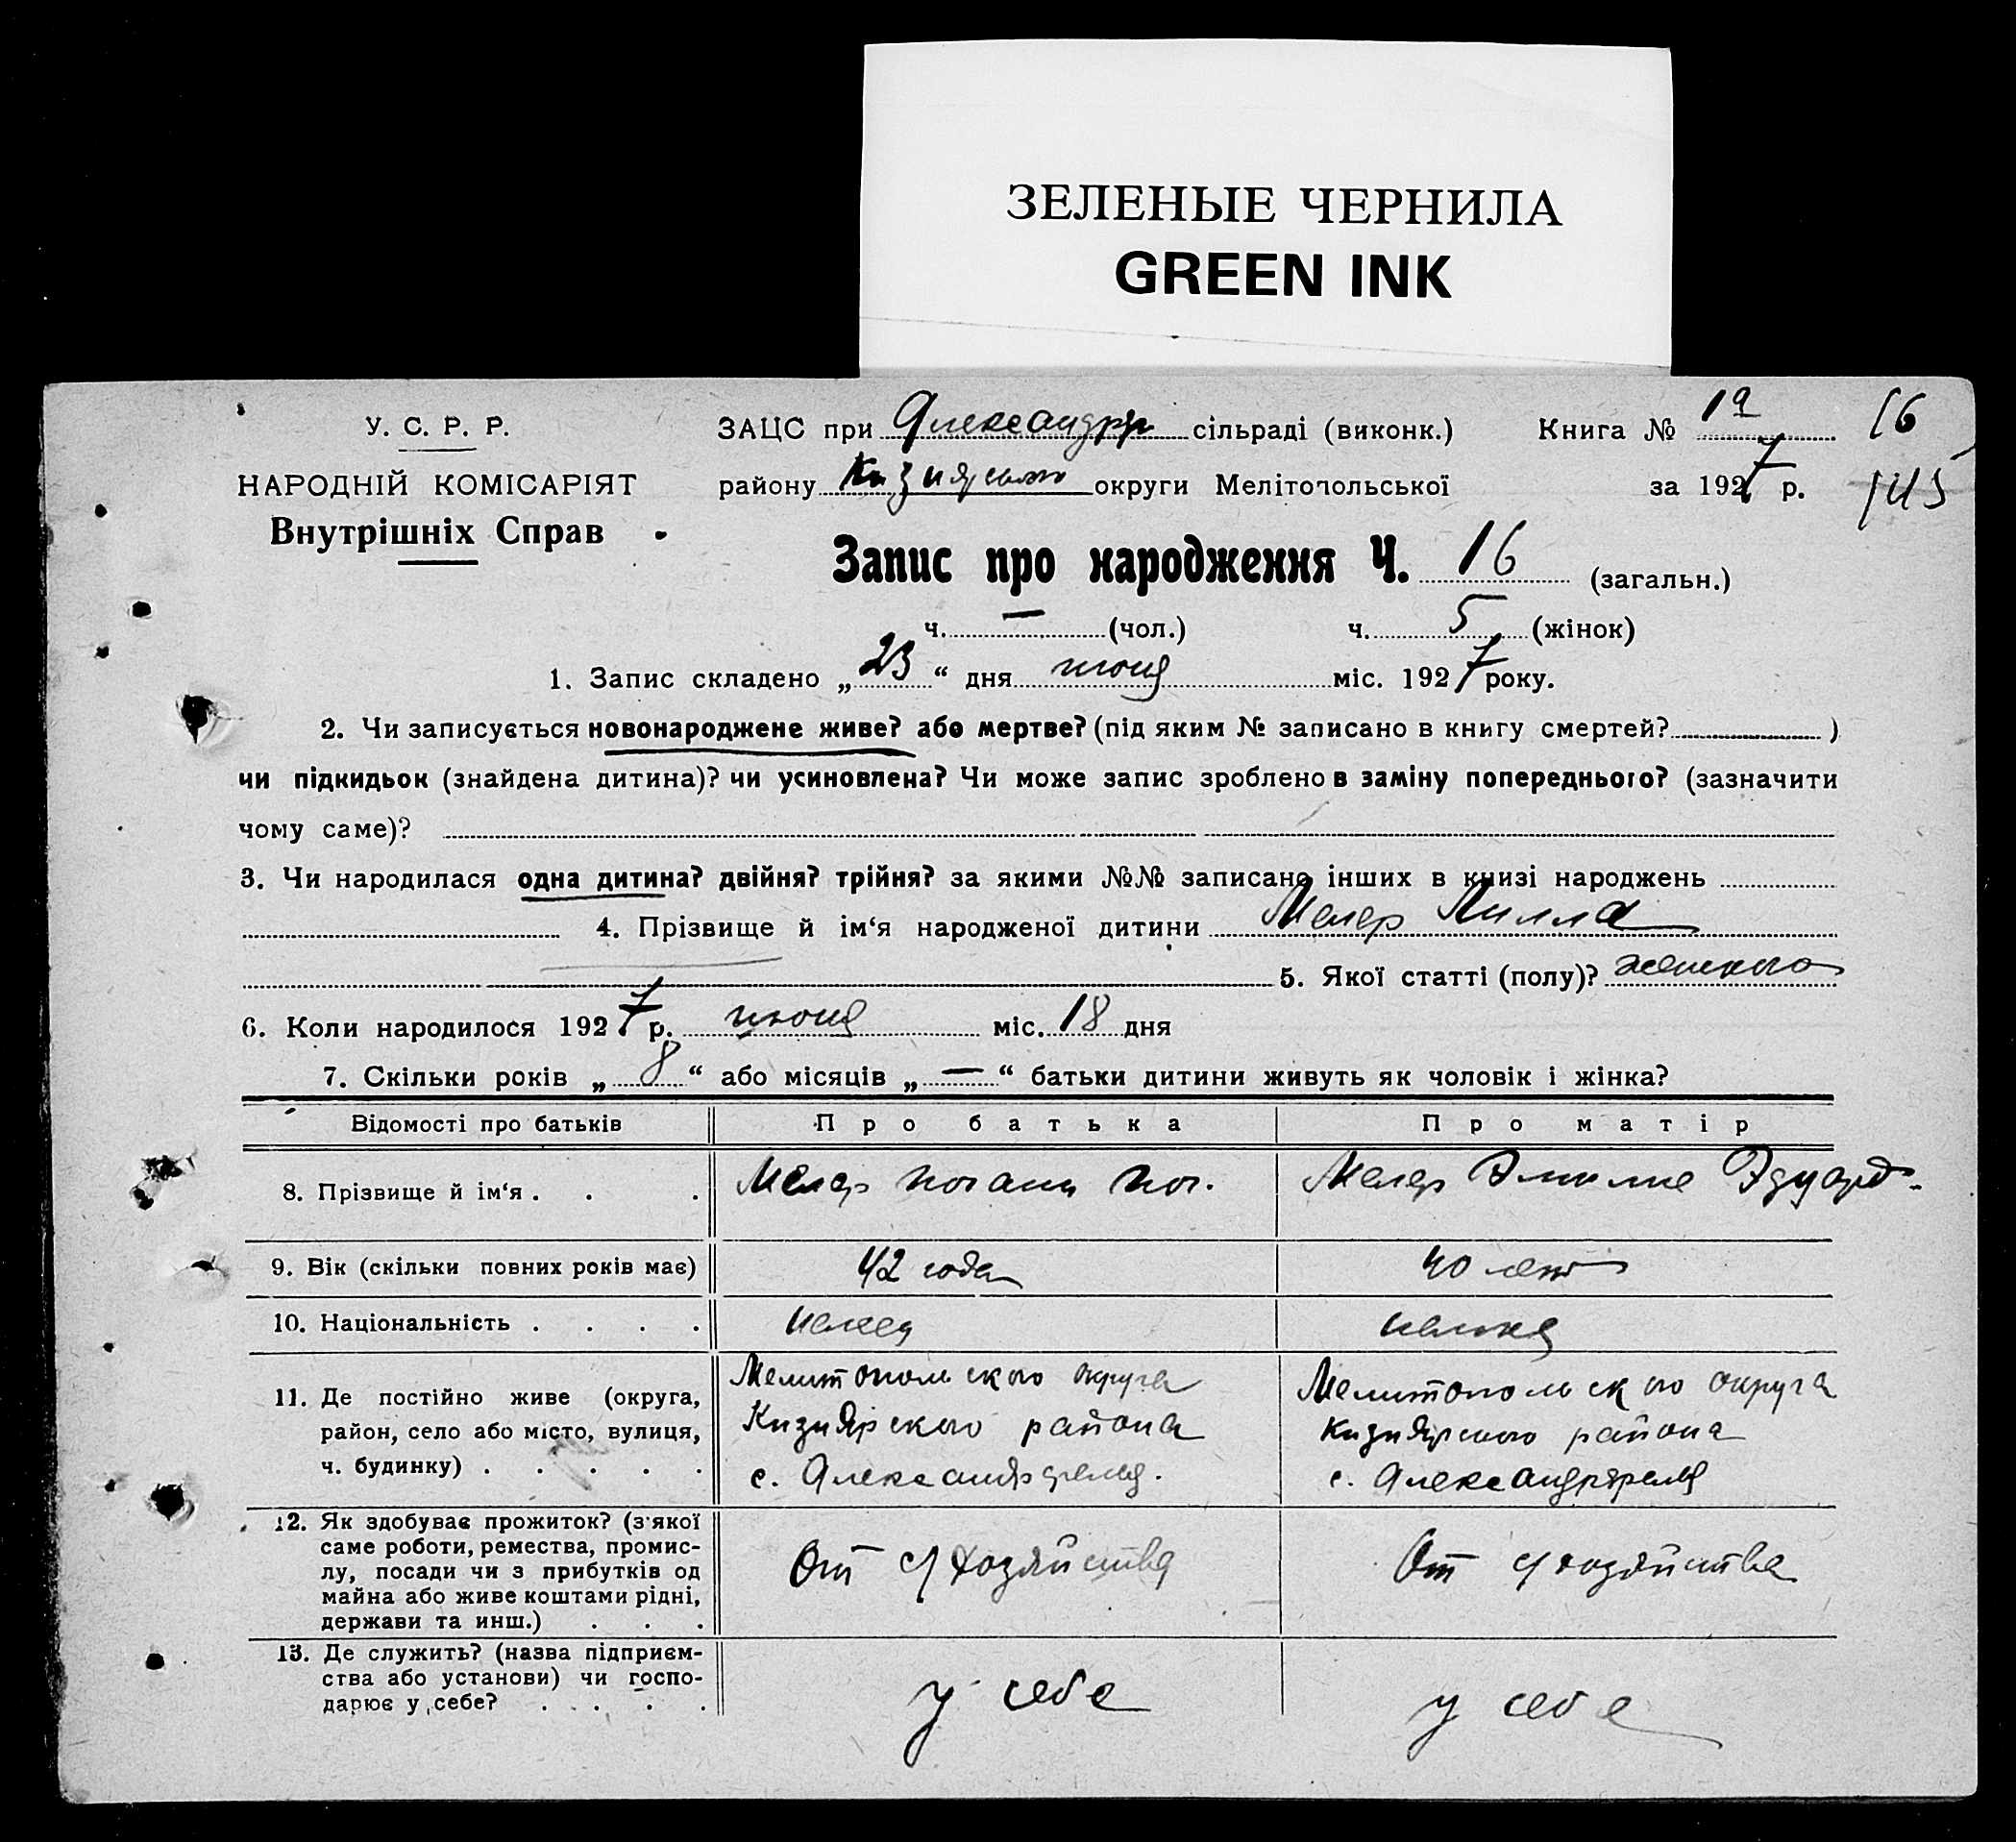 ЗЕЛЕНЫЕ ЧЕРНИЛА
GREEN INK
У. С. Р. Р.
НАРОДНІЙ КОМІСАРІЯТ
Внутрішніх Справ
ЗАЦС при Александрф сільраді (виконк.) Книга № 1а 16
району Кизиярского округи Мелітопольської за 1927 р. 145
Запис про народження Ч. 16 (загальн.)
ч. — (чол.) ч. 5 (жінок)
1. Запис складено „23“ дня июня міс. 1927 року.
2. Чи записується новонароджене живе? або мертве? (під яким № записано в книгу смертей? )
чи підкидьок (знайдена дитина)? чи усиновлена? Чи може запис зроблено в заміну попереднього? (зазначити
чому саме)?
3. Чи народилася одна дитина? двійня? трійня? за якими №№ записано інших в книзі народжень
4. Прізвище й ім‘я народженої дитини Мелер Лилла
5. Якої статті (полу)? женского
6. Коли народилося 1927 р. июня міс. 18 дня
7. Скільки років „8“ або місяців „—“ батьки дитини живуть як чоловік і жінка?
Відомості про батьків Про батька Про матір
8. Прізвище й ім‘я . . . Мелер Иоган Иог. Мелер Эмилие Эдуард.
9. Вік (скільки повних років має) 42 года 40 лет
10. Національність . . . . немец немка
11. Де постійно живе (округа, Мелитопольского округа Мелитопольского округа
район, село або місто, вулиця, Кизиярского района Кизиярского района
ч. будинку) . . . . . с. Александрфельд. с. Александрфельд
12. Як здобуває прожиток? (з'якої
саме роботи, ремества, промис-
лу, посади чи з прибутків од От с/хозяйства От с/хозяйства
майна або живе коштами рідні,
держави та инш.) . . .
13. Де служить? (назва підприєм-
ства або установи) чи госпо- у себе у себе
дарює у себе? . . . .